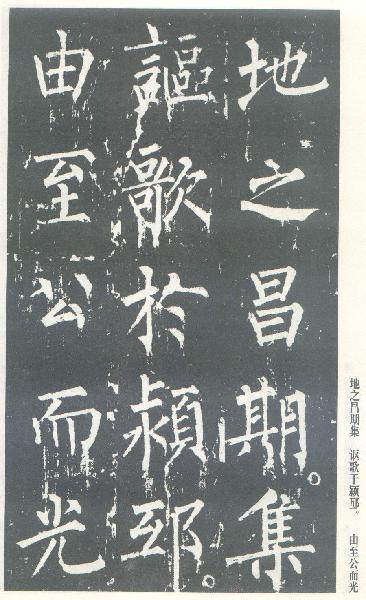 地之昌期。集
謳歌於潁邸。
由至公而光
地之昌期集 讴歌于颍邸。 由至公而光